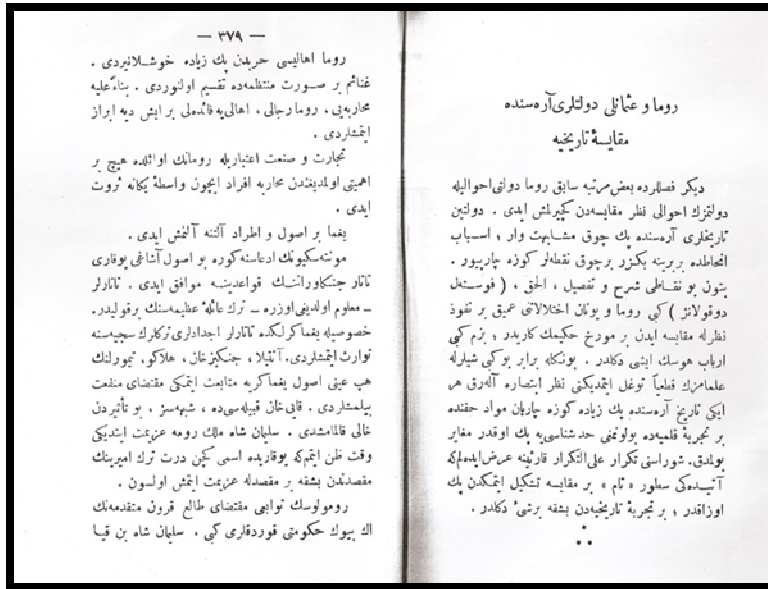 روما و عثمانلی دولتلری آره‌سنده
مقایسهٔ تاریخیه
دیكر فصللرده بعض مرتبه سابق روما دولتی احوالیله
دولتمزك احوالی نظر مقایسه‌دن كچیرلمش ایدی . دولتین
تاریخلری آره‌سنده پك چوق مشابهت وار ؛ اسباب
انحطاطده بربرینه بكزر برچوق نقطه‌لر كوزه چارپیور .
بتون بو نقاطی شرح و تفصیل ، الحق ، ( فوستل
دوقولانژ ) كبی روما و یونان اختلالاتنی عمیق بر نفوذ
نظرله مقایسه ایدن بر مورخ حكیمك كاریدر ؛ بزم كبی
ارباب هوسك ایشی دكلدر . بونكله برابر بو كبی شیلرله
علمامزك قطعیاً توغل ایتمدیكنی نظر اعتباره آله‌رق هر
ایكی تاریخ آره‌سنده پك زیاده كوزه چارپان مواد حقنده
بر تجربهٔ قلمیه‌ده بولونمنی حد شناسی‌یه پك اوقدر مغایر
بولمدق. شوراسنی تكرار علی‌التكرار قارئینه عرض ایده‌لم‌كه
آتیده‌كی سطور « تام » بر مقایسه تشكیل ایتمكدن پك
اوزاقدر ؛ بر تجربهٔ تاریخیه‌دن بشقه برشیٔ دكلدر .
— ٣٧٩ —
روما اهالیسی حربدن پك زیاده خوشلانیردی .
غنائم بر صورت منتظمه‌ده تقسیم اولنوردی . بناءً علیه
محاربه‌یی ، روما رجالی ، اهالی‌یه فائده‌لی بر ایش دیه ابراز
ایتمشلردی .
تجارت و صنعت اعتباریله رومانك اوائلده هیچ بر
اهمیتی اولمدیغندن محاربه افراد ایچون واسطهٔ یكانه ثروت
ایدی .
یغما بر اصول و اطراد آلتنه آلنمش ایدی .
مونته‌سكیونك ادعاسنه كوره بو اصول آشاغی یوقاری
تاتار جنكاورانتك قواعدینه موافق ایدی . تاتارلر
ـ معلوم اولدیغی اوزره ـ ترك عائلهٔ عظیمه‌سنك برقولیدر.
خصوصیله یغماكرلكده تاتارلر اجدادلری تركلرك سجیه‌سنه
توارث ایتمشلردی. آتیلا ، جنكیزخان ، هلاكو، تیمورلنك
هپ عینی اصول یغماكری‌یه متابعت ایتمكی مقتضای منفعت
بیلمشلردی . قایی خان قبیله‌سی‌ده ، شبهه‌سز . بو تأثیردن
خالی قالمامشدی . سلیمان شاه ملك رومه عزیمت ایتدیكی
وقت ظن ایتم‌كه یوقاریده اسمی كچن درت ترك امیرینك
مقصدندن بشقه بر مقصدله عزیمت ایتمش اولسون .
رومولوسك توابعی مقتضای طالع قرون متقدمه‌نك
اك بیوك حكومتی قوردقلری كبی ، سلیمان شاه بن قیا